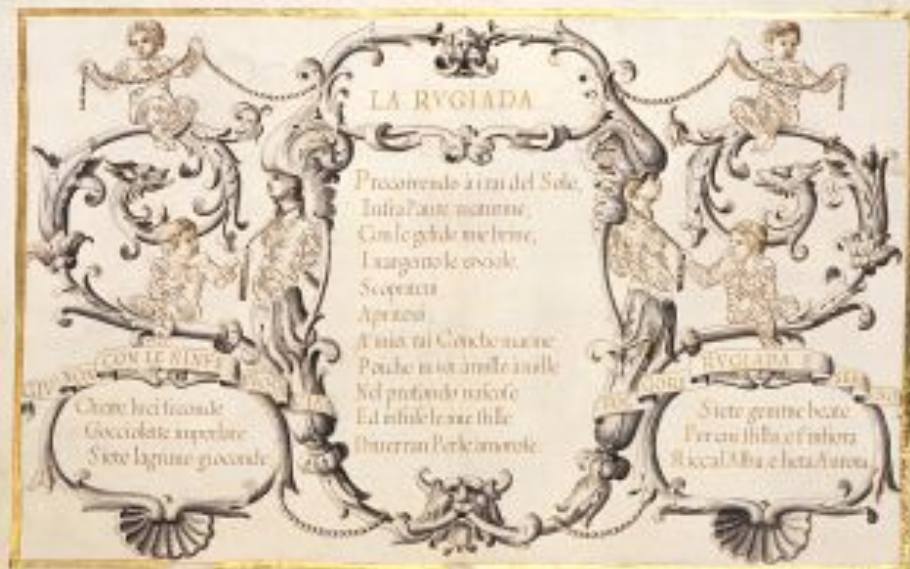 LA RVGIADA
Precorrendo à i rai del Sole,
Infra l'aure matutine,
Con le gelide mie brine,
Inargento le
Scopritevi
Apritevi
A' miei rai Cōnche marine
Perche in voi à mille à mille
Nel profondo nascose
Ed infuse le mie stille
Diverran Perle amorose.
CON LE NINFE
RVGIADA E
Chiare luci feconde
Gocciolette imperlate
Siete lagrime gioconde
Siete gemme beate
Per cui stilla, e s'infiora
Ricca l'Alba, e lieta Aurora